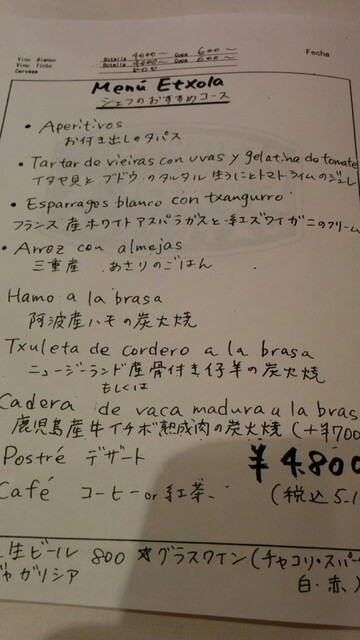 Vino Blanco Botella 4000〜 Copa 600〜 Fecha
Vino Tinto Botella 4000〜 Copa 600〜
Cerveza
Menú Etxola
シェフのおすすめコース
• Aperitivos
お付き出しのタパス
• Tartar de vieiras con uvas y gelatina do tomate
イタヤ貝と ブドウのタルタル 生うにとトマトライムのジュレ
• Esparragos blanco con txangurro
フランス産ホワイトアスパラガスと紅ズワイガニのクリーム
• Arroz con almejas
三重産 あさりのごはん
Hamo a la brasa
阿波産ハモの炭火焼
Txuleta de cordero a la brasa
ニュージーランド産骨付き仔羊の炭火焼
もしくは
Cadera de vaca madura a la bras
鹿児島産牛イチボ熟成肉の炭火焼 (+¥700
Postré デザート ¥4.800
Café コーヒー or 紅茶 (税込 5.1
生ビール 800 ☆グラスワイン (チャコリ・スパー
ガリシア 白・赤、)